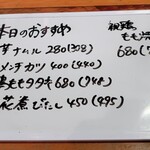 本日のおすすめ
芽ナムル 280(308)
メンチカツ 400(440)
ももタタキ 680(748)
花煮びたし 450(495)
もも
680(7